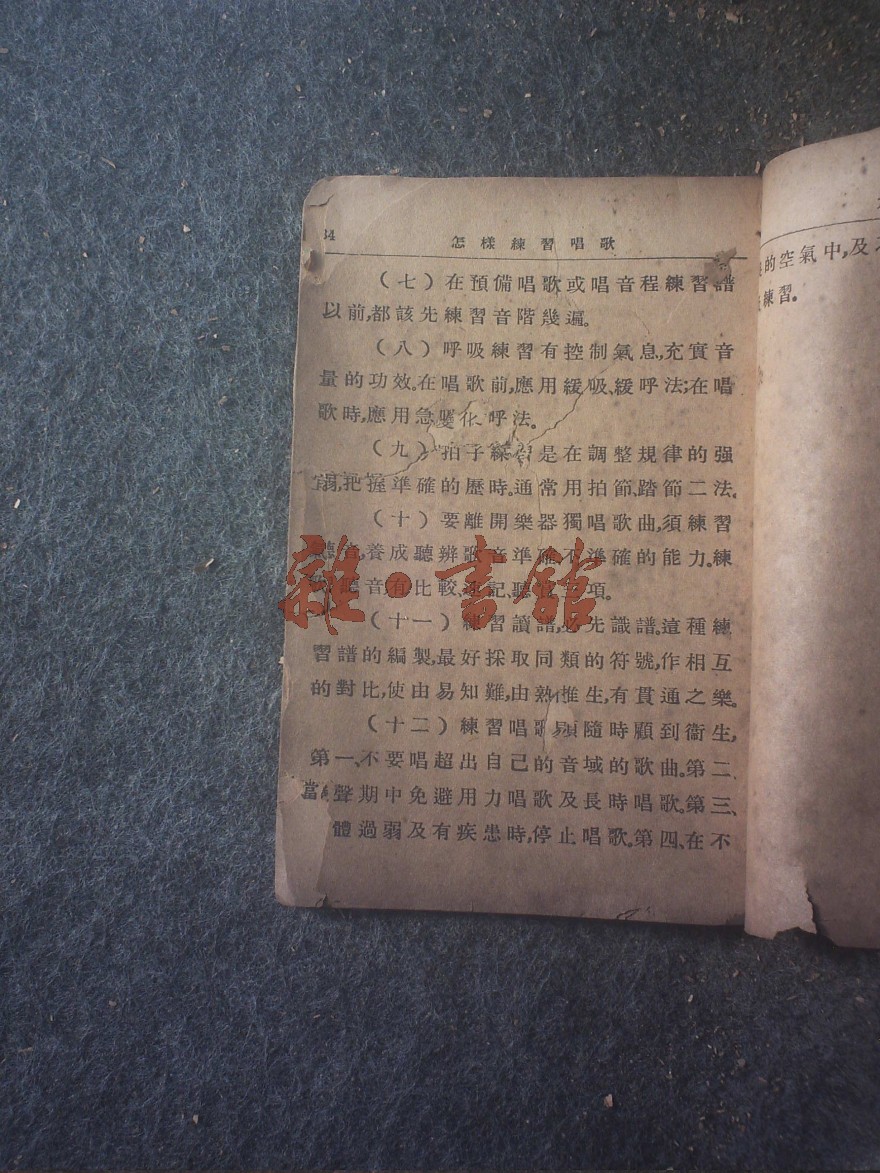 怎樣練習唱歌
（七）在預備唱歌或唱音程練習譜
以前,都該先練習音階幾遍。
（八）呼吸練習有控制氣息,充實音
量的功效。在唱歌前,應用緩吸、緩呼法;在唱
歌時,應用急 呼法。
（九）拍子練習是在調整規律的强
弱,把握準確的歷時。通常用拍節、踏節二法。
（十）要離開樂器獨唱歌曲,須練習
聽音,養成聽辨歌音準確不準確的能力。練
聽音有比較、速記、聽 項。
（十一）練習讀譜,必先識譜。這種練
習譜的編製,最好採取同類的符號,作相互
的對比,使由易知難,由熟推生,有貫通之樂。
（十二）練習唱歌須隨時顧到衞生,
第一、不要唱超出自己的音域的歌曲。第二、
當 聲期中免避用力唱歌及長時唱歌。第三、
體過弱及有疾患時,停止唱歌。第四、在不
的空氣中,及
練習.
雜·書館